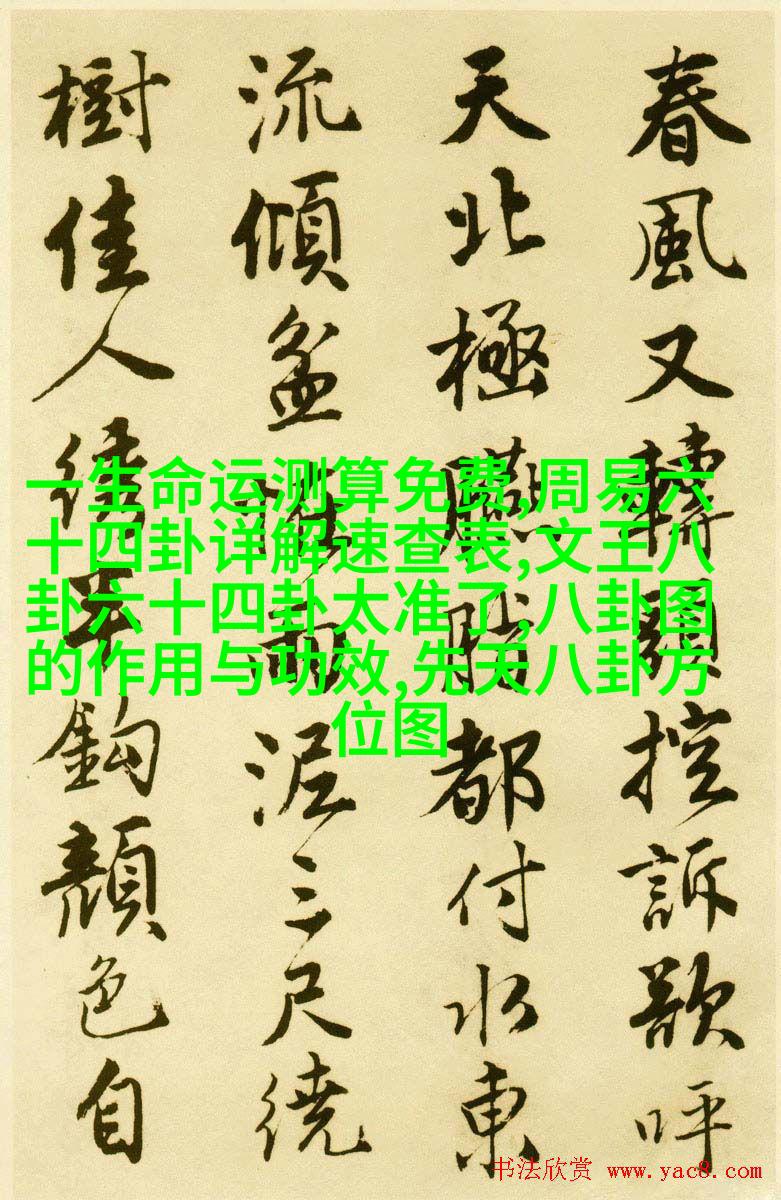 春風又轉頭控訴歌呼
天北極臙脂都付水東
流傾盆雨泥三尺繞
樹佳人鈎顏色自
一生命运测算免费,周易六
十四卦详解速查表,文王八
卦六十四卦太准了,八卦图
的作用与功效,先天八卦方
位图
书法欣赏 www.yac8.com